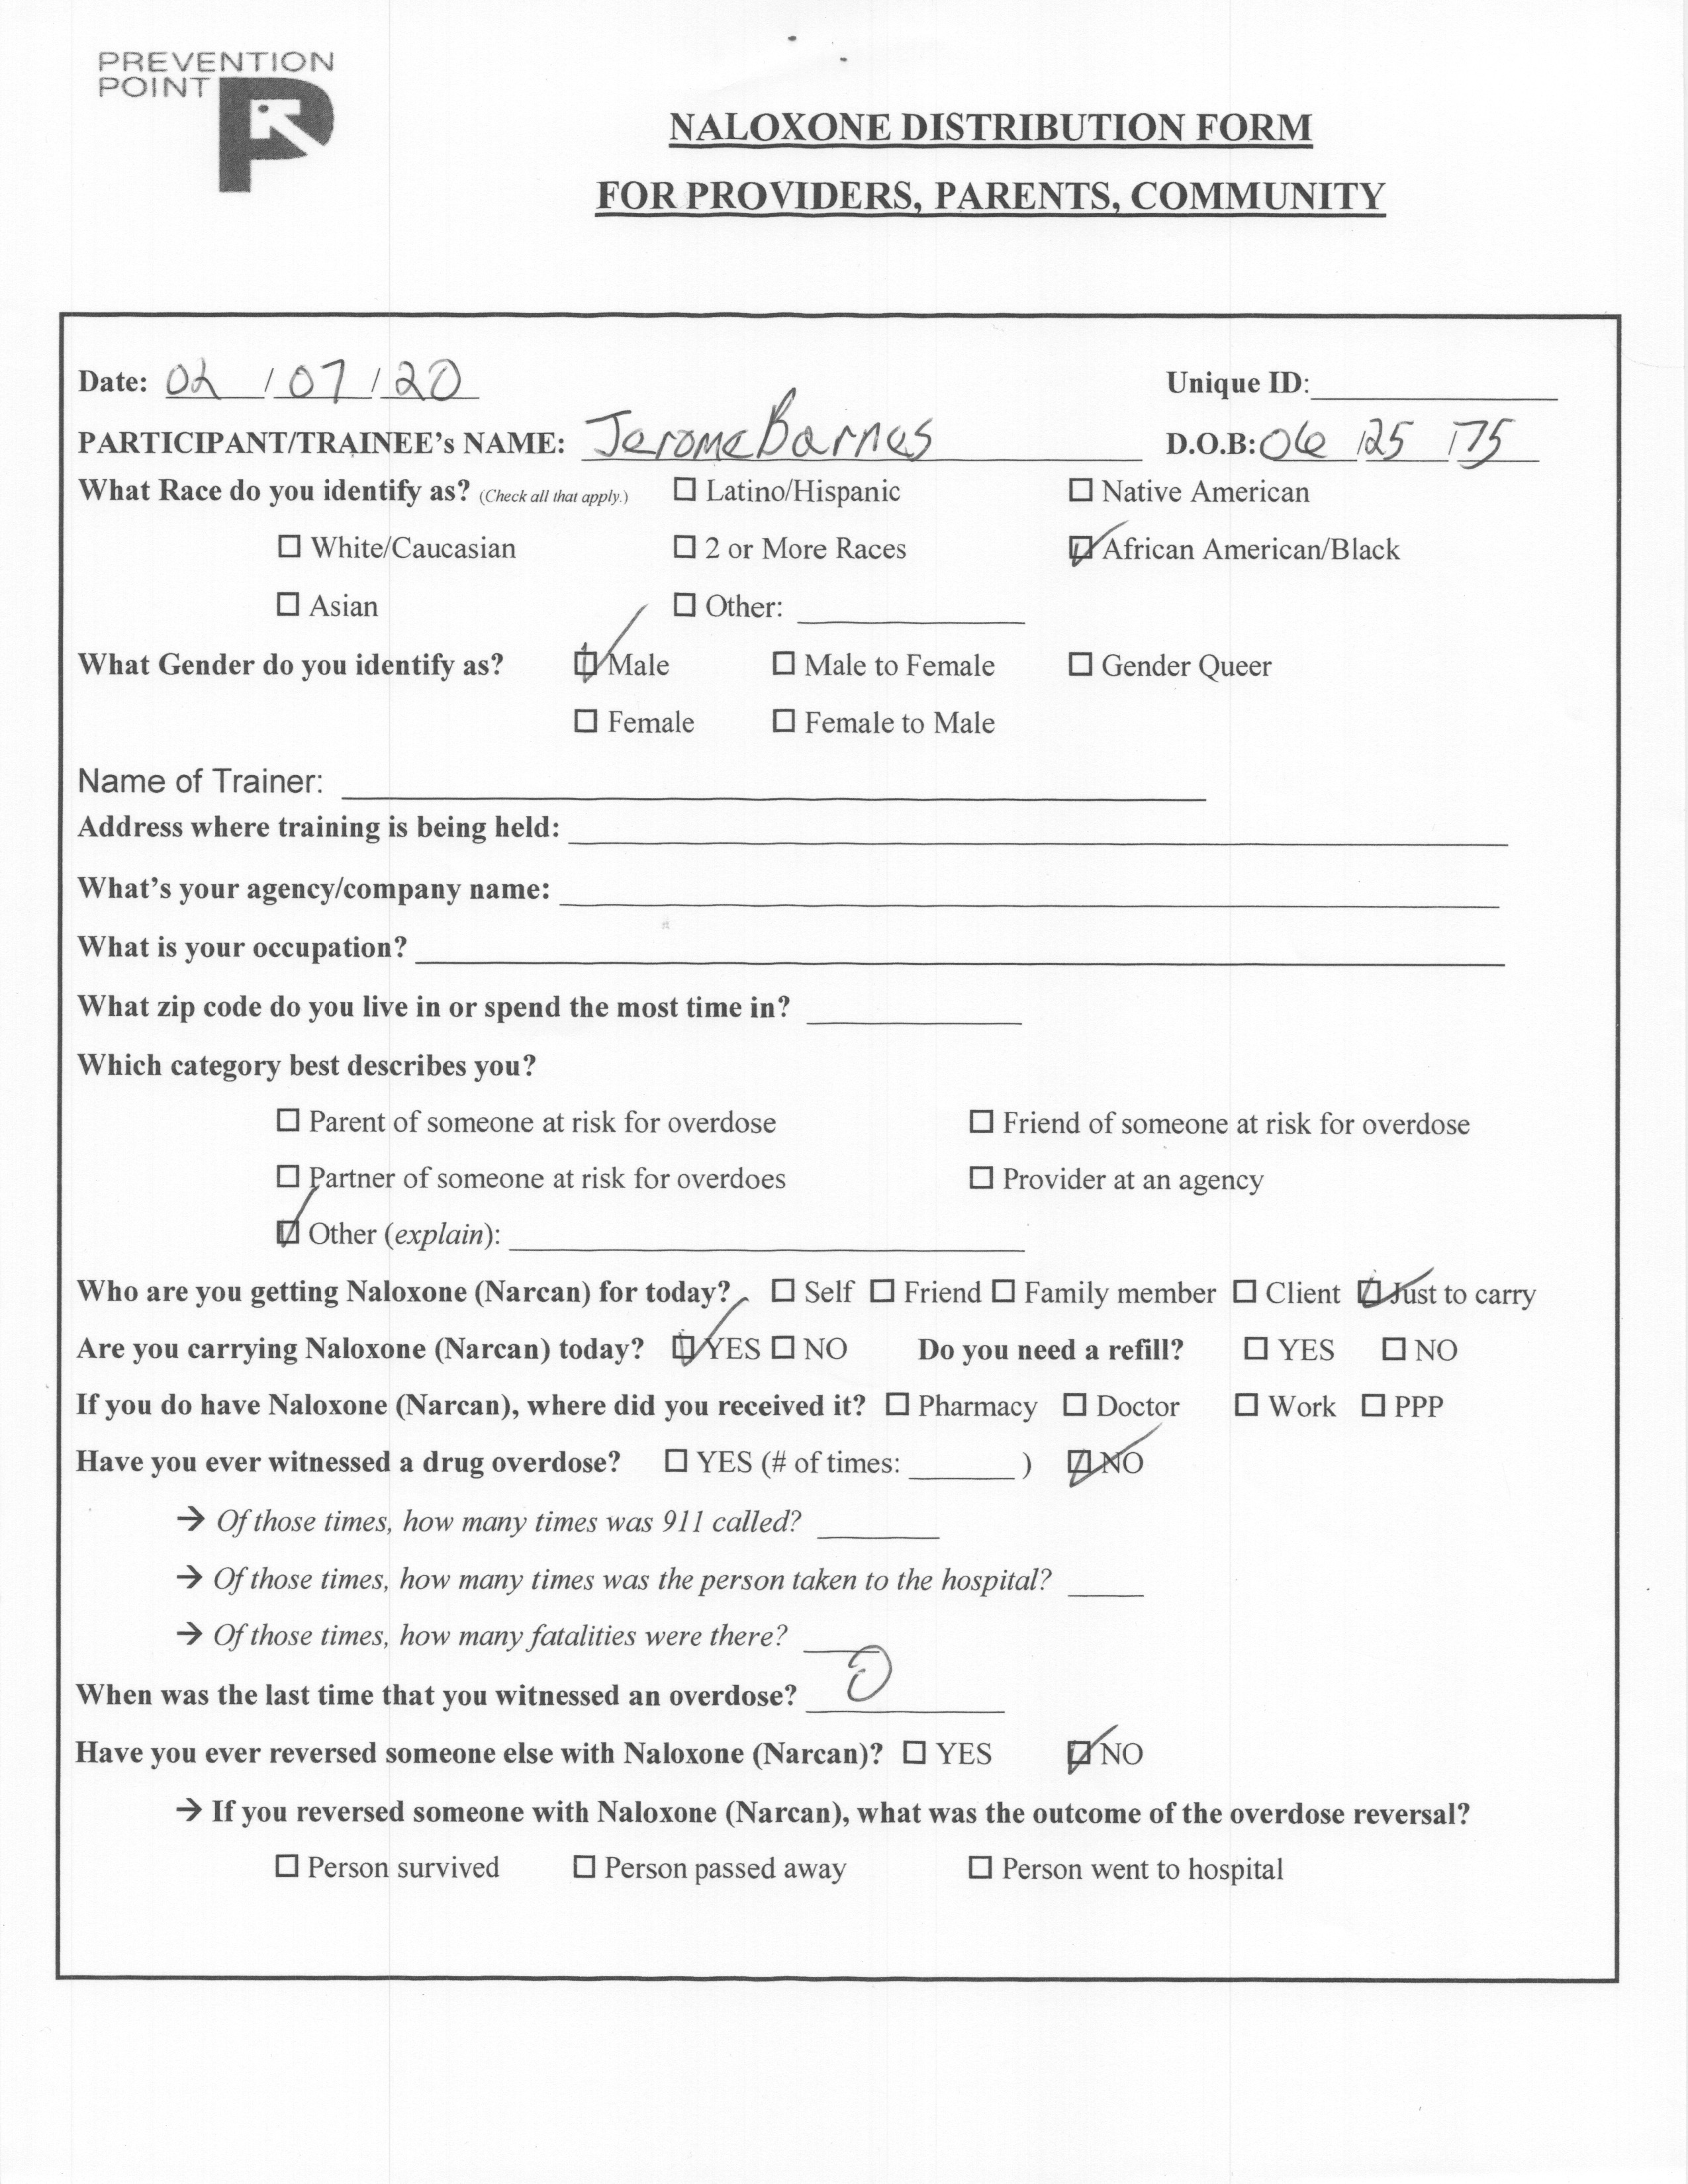 PREVENTION
POINT
NALOXONE DISTRIBUTION FORM
FOR PROVIDERS, PARENTS, COMMUNITY
Date: 02 / 07 / 20 Unique ID:
PARTICIPANT/TRAINEE's NAME: Jerome Barnes D.O.B: 06 / 25 / 75
What Race do you identify as? (Check all that apply.) ☐ Latino/Hispanic ☐ Native American
☐ White/Caucasian ☐ 2 or More Races ☑ African American/Black
☐ Asian ☐ Other:
What Gender do you identify as? ☑ Male ☐ Male to Female ☐ Gender Queer
☐ Female ☐ Female to Male
Name of Trainer:
Address where training is being held:
What's your agency/company name:
What is your occupation?
What zip code do you live in or spend the most time in?
Which category best describes you?
☐ Parent of someone at risk for overdose ☐ Friend of someone at risk for overdose
☐ Partner of someone at risk for overdoes ☐ Provider at an agency
☑ Other (explain):
Who are you getting Naloxone (Narcan) for today? ☐ Self ☐ Friend ☐ Family member ☐ Client ☑ Just to carry
Are you carrying Naloxone (Narcan) today? ☑ YES ☐ NO Do you need a refill? ☐ YES ☐ NO
If you do have Naloxone (Narcan), where did you received it? ☐ Pharmacy ☐ Doctor ☐ Work ☐ PPP
Have you ever witnessed a drug overdose? ☐ YES (# of times: ) ☑ NO
→ Of those times, how many times was 911 called?
→ Of those times, how many times was the person taken to the hospital?
→ Of those times, how many fatalities were there?
When was the last time that you witnessed an overdose? 0
Have you ever reversed someone else with Naloxone (Narcan)? ☐ YES ☑ NO
→ If you reversed someone with Naloxone (Narcan), what was the outcome of the overdose reversal?
☐ Person survived ☐ Person passed away ☐ Person went to hospital